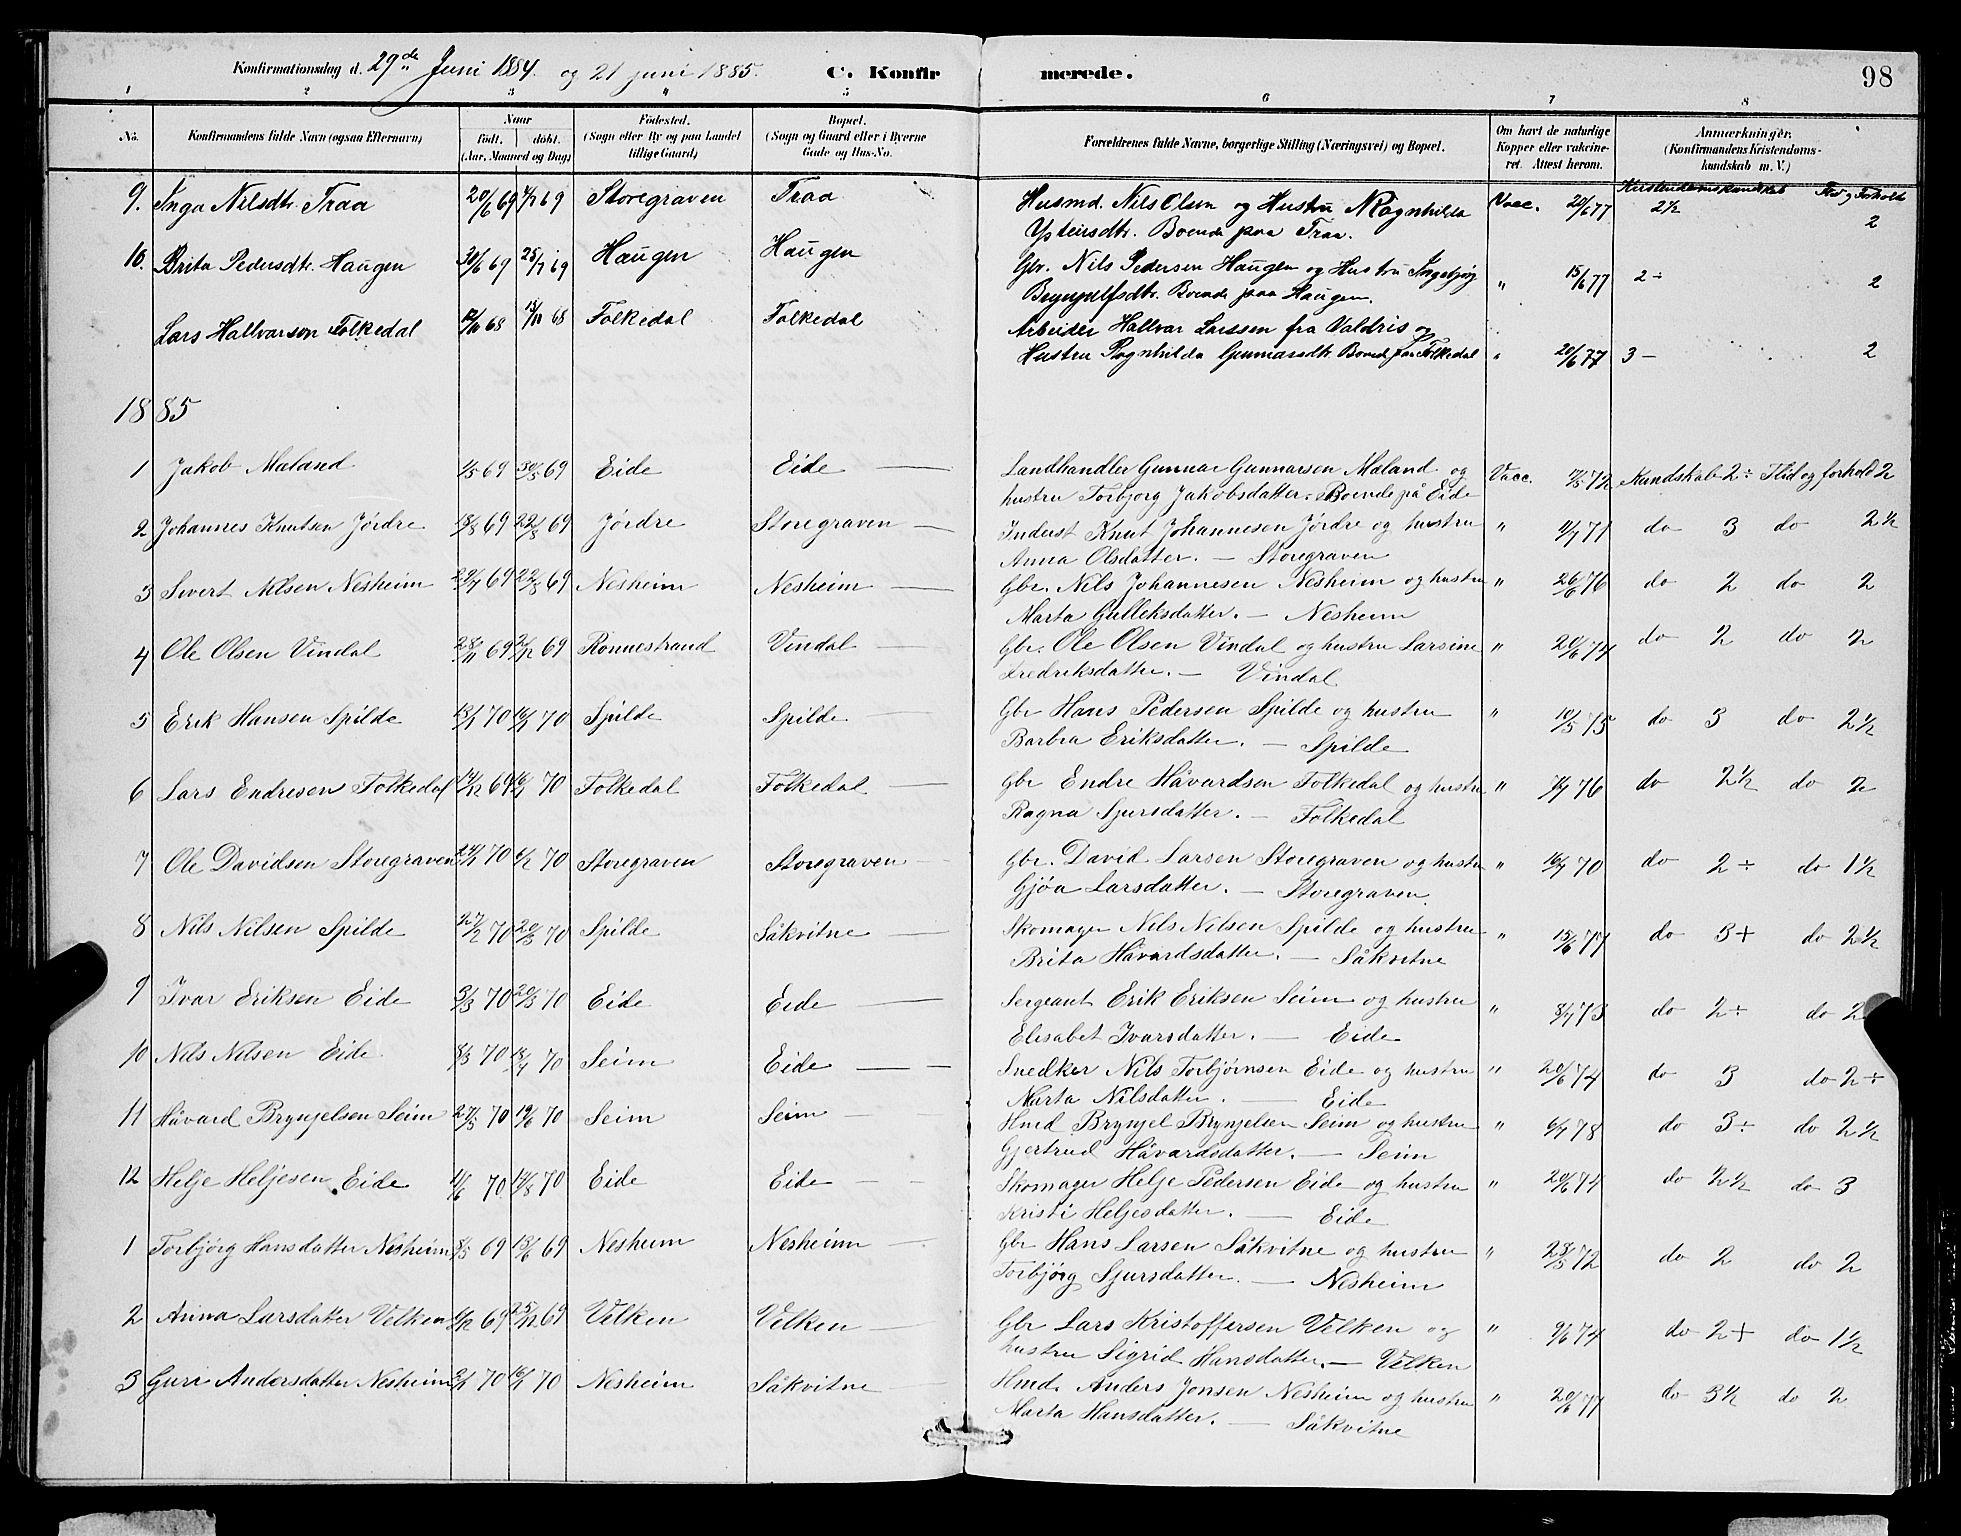 Konfirmationsdag d. 29de Juni 1884. og 21 juni 1885. C. Konfirmerede. 98
1 2 3 4 5 6 7 8
No. Konfirmandens fulde Navn (ogsaa Efternavn) Naar födt. döbt. (Aar, Maaned og Dag) Födested. (Sogn eller By og paa Landet tillige Gaard) Bopæl. (Sogn og Gaard eller i Byerne Gade og Hus-No. Forældrenes fulde Navne, borgerlige Stilling (Næringsvei) og Bopæl. Om havt de naturlige Kopper eller vakcineret. Attest herom. Anmærkninger. (Konfirmandens Kristendomskundskab m. V.)
9. Inga Nilsdtr. Traa 20/6 69 4/7 69 Storegraven Traa Husmd. Nils Olsen og Hustru Ragnhilda Vacc. 20/6 77 Kristendomskundskab 2½ Flid og Forhold
Ysteinsdtr. Boende paa Traa. 2
10. Brita Pedersdtr. Haugen 30/6 69 25/7 69 Haugen Haugen Gbr. Nils Pedersen Haugen og Hustru Ingebjørg " 15/6 77 2÷ 2
Brynjulfsdtr. Boende paa Haugen.
Lars Hallvarson Folkedal 12/11 68 15/11 68 Folkedal Folkedal Arbeider Hallvar Larssen fra Valdris og
Hustru Ragnhilda Gunnarsdtr. Boende paa Folkedal " 20/6 77 3 – 2
1885
1 Jakob Mæland 1/5 69 30/5 69 Eide Eide Landhandler Gunnar Gunnarsen Mæland og Vacc. 17/5 72 Kundskab 2÷ Flid og forhold 2
hustru Torbjorg Jakobsdatter. Boende på Eide
2 Johannes Knutsen Jördre 13/5 69 22/5 69 Jördre Storegraven Inderst Knut Johannesen Jördre og hustru " 11/7 71 do 3 do 2½
Anna Olsdatter. – Storegraven
3 Sivert Nilsen Nesheim 29/4 69 22/5 69 Nesheim Nesheim Gbr. Nils Johannesen Nesheim og hustru " 26/6 76 do 2 do 2
Marta Gulleksdatter. – Nesheim
4 Ole Olsen Vindal 28/11 69 2/12 69 Ronnestrand Vindal Gbr. Ole Olsen Vindal og hustru Larsine " 20/6 74 do 2 do 2
Fredriksdatter. – Vindal
5 Erik Hansen Spilde 13/1 70 16/1 70 Spilde Spilde Gbr Hans Pedersen Spilde og hustru " 10/5 75 do 3 do 2½
Barbra Eriksdatter. – Spilde
6 Lars Endresen Folkedal 14/12 69 16/1 70 Folkedal Folkedal Gbr Endre Håvardsen Folkedal og hustru " 7/7 76 do 2½ do 2
Ragna Sjursdatter. – Folkedal
7 Ole Davidsen Storegraven 24/1 70 6/2 70 Storegraven Storegraven Gbr. David Larsen Storegraven og hustru " 16/7 70 do 2÷ do 1½
Gjöa Larsdatter. – Storegraven.
8 Nils Nilsen Spilde 27/2 70 20/3 70 Spilde Såkvitne Skomager Nils Nilsen Spilde og hustru " 15/6 77 do 3+ do 2½
Brita Håvardsdatter. – Såkvitne
9 Ivar Eriksen Eide 3/3 70 20/3 70 Eide Eide Sergeant Erik Eriksen Seim og hustru " 8/7 73 do 2÷ do 2
Elisabet Ivarsdatter. – Eide
10 Nils Nilsen Eide 8/3 70 18/4 70 Seim Eide Snedker Nils Torbjörnsen Eide og hustru " 20/6 74 do 3 do 2÷
Marta Nilsdatter. – Eide
11 Håvard Brynjelsen Seim 27/5 70 19/6 70 Seim Seim Hmd Brynjel Brynjelsen Seim og hustru " 6/7 78 do 3÷ do 2½
Gjertrud Håvardsdatter. – Seim
12 Helje Heljesen Eide 11/6 70 14/8 70 Eide Eide Skomager Helje Pedersen Eide og hustru " 20/6 74 do 2½ do 3
Kristi Heljesdatter. – Eide
1 Torbjörg Hansdatter Nesheim 8/5 69 13/6 69 Nesheim Nesheim Gbr Hans Larsen Såkvitne og hustru " 28/5 72 do 2 do 2
Torbjörg Sjursdatter. – Nesheim
2 Anna Larsdatter Velken 9/12 69 25/12 69 Velken Velken Gbr Lars Kristoffersen Velken og " 9/6 74 do 2+ do 1½
hustru Sigrid Hansdatter. – Velken
3 Guri Andersdatter Nesheim 3/1 70 16/1 70 Nesheim Såkvitne Hmd. Anders Jonsen Nesheim og hustru " 20/6 77 do 3½ do 2
Marta Hansdatter. – Såkvitne